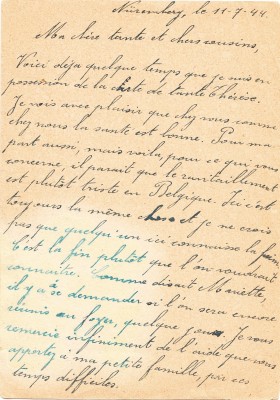 Nüremberg, le 11-7-44
Ma chère tante et chers cousins,
Voici déja quelque temps que je suis en
possession de la carte de tante Thérèse.
Je vois avec plaisir que chez vous comme
chez nous la santé est bonne. Pour ma
part aussi, mais voilà, pour ce qui vous
concerne, il parait que le ravitaillement
est plutôt triste en Belgique. Ici c'est
toujours la même chose et je ne crois
pas que quelqu'un ici connaisse la faim
C'est la fin plutot que l'on voudrait
connaitre. Comme disait Mariette,
il y a à se demander si l'on sera encore
réunis au foyer, quelque jour. Je vous
remercie infiniment de l'aide que vous
apportez à ma petite famille, par ces
temps difficiles.